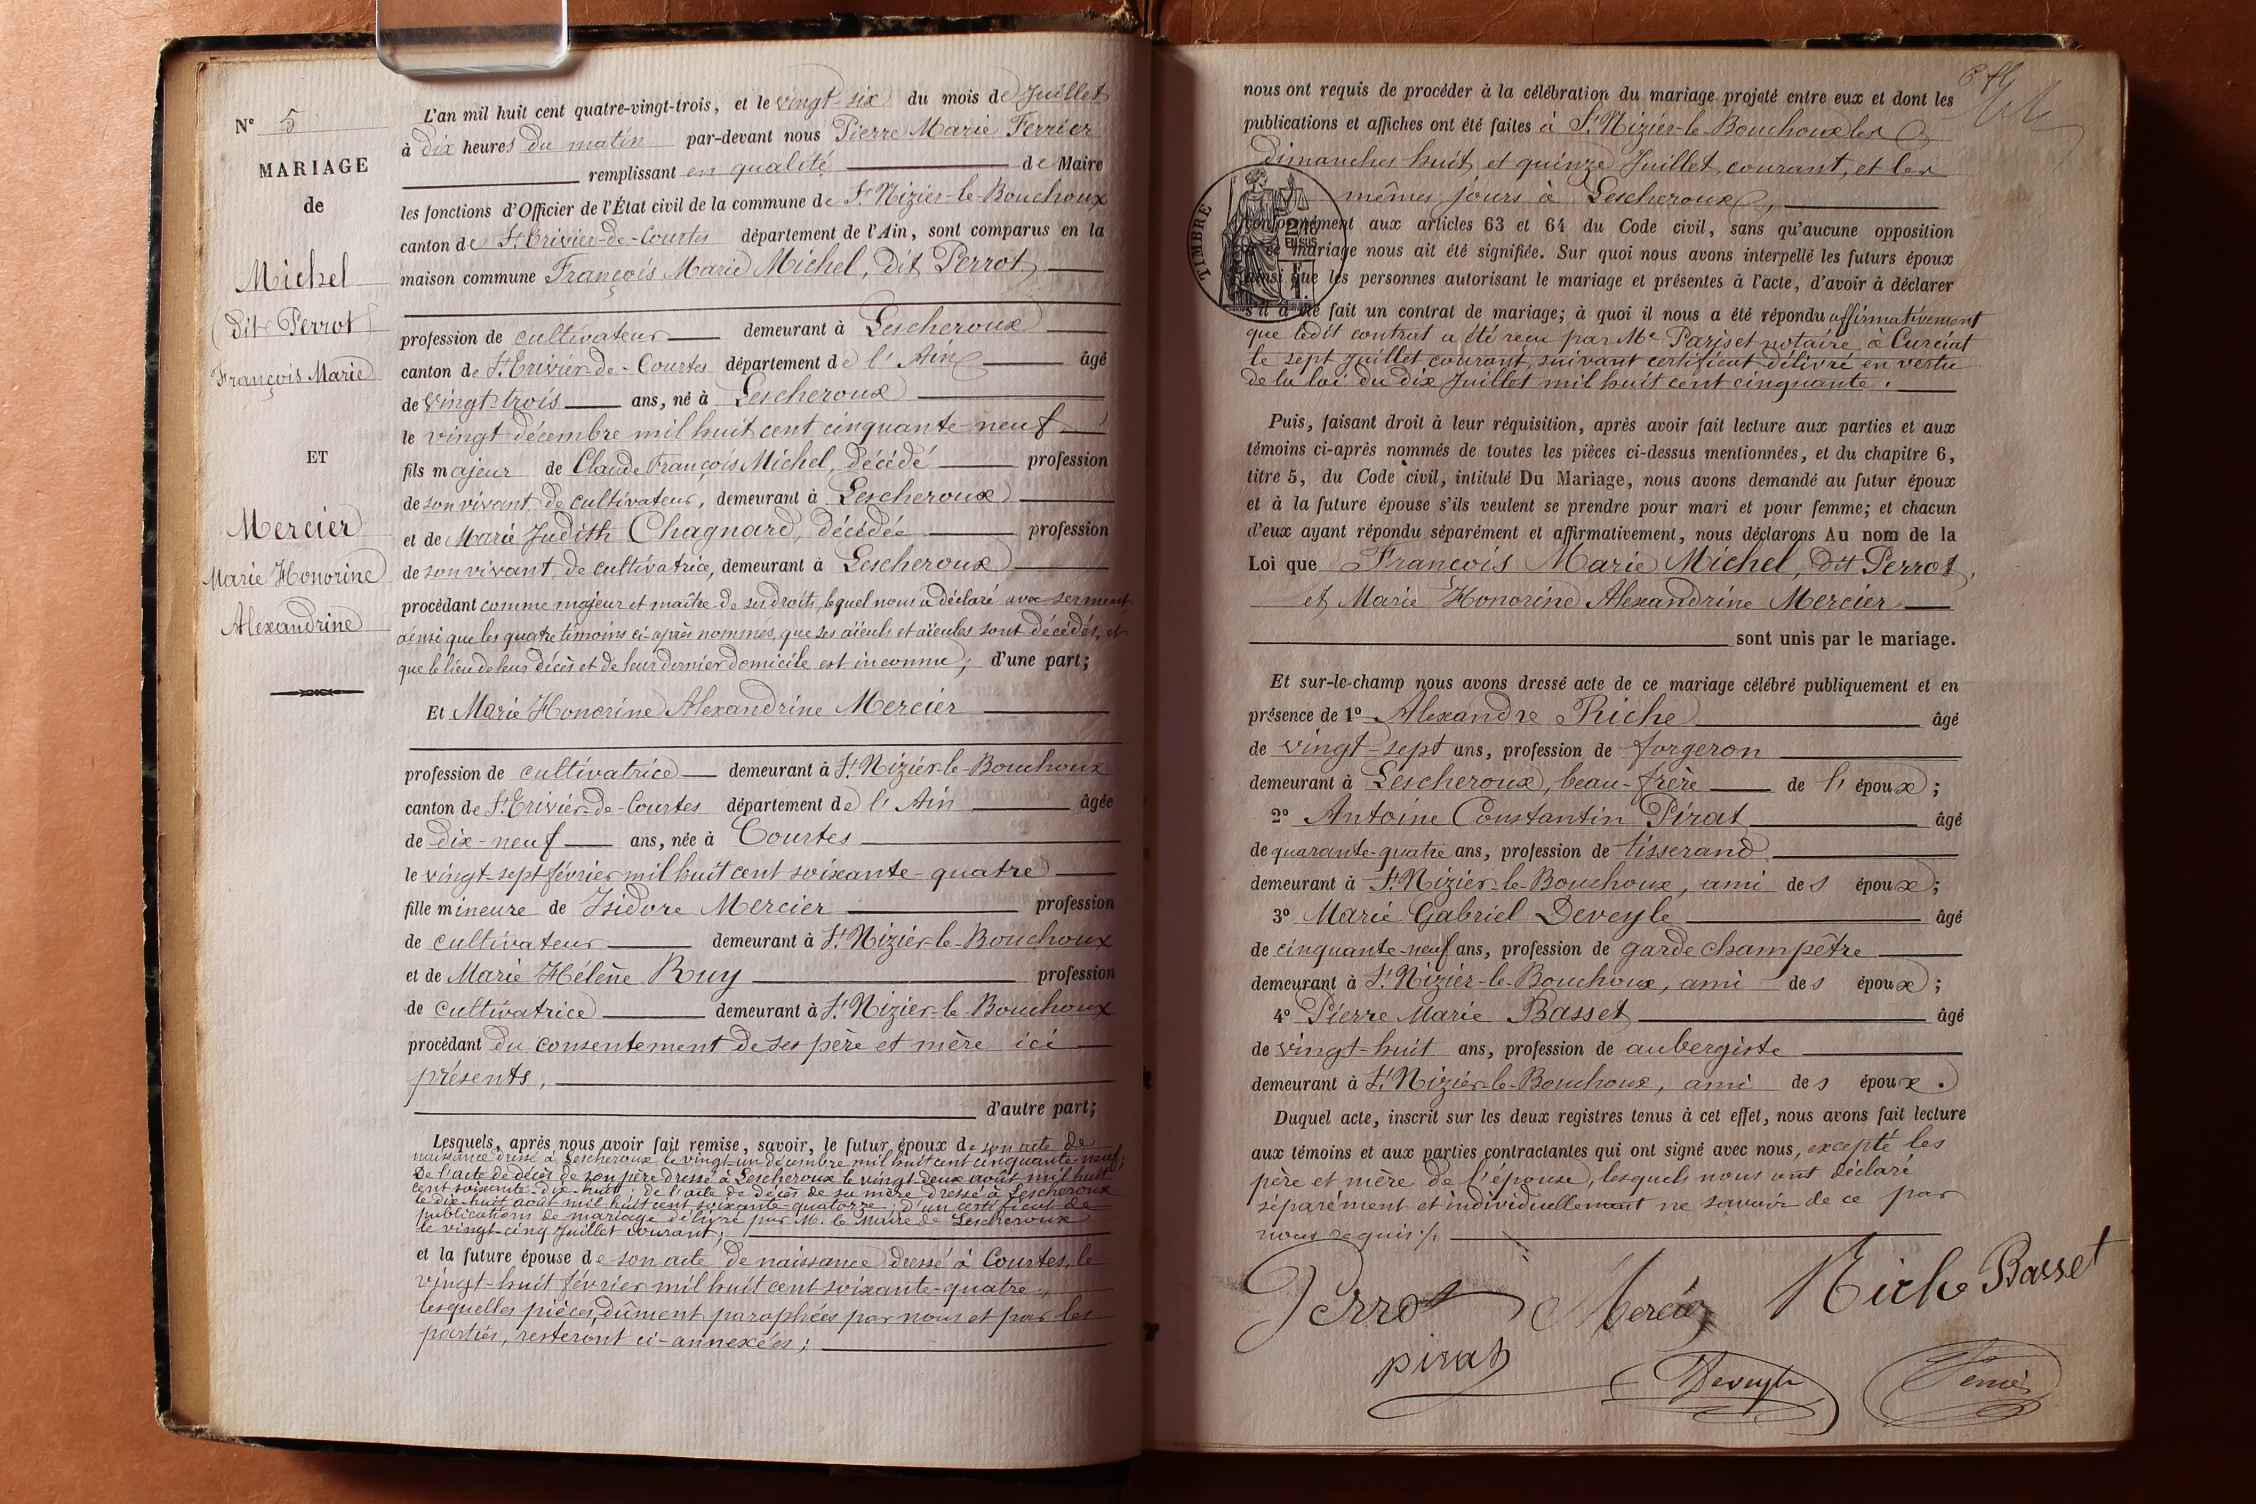 N° 5
MARIAGE
de
Michel
(dit Perrot)
François Marie
ET
Mercier
Marie Honorine
Alexandrine
L'an mil huit cent quatre-vingt-trois, et le vingt-six du mois de Juillet
à dix heures du matin par-devant nous Pierre Marie Ferrier
remplissant en qualité de Maire
les fonctions d'Officier de l'État civil de la commune de St Nizier-le-Bouchoux
canton de St Trivier-de-Courtes département de l'Ain, sont comparus en la
maison commune François Marie Michel, dit Perrot,
profession de cultivateur demeurant à Lescheroux
canton de St Trivier-de-Courtes département de l'Ain âgé
de vingt-trois ans, né à Lescheroux
le vingt décembre mil huit cent cinquante-neuf
fils majeur de Claude François Michel, décédé profession
de son vivant de cultivateur, demeurant à Lescheroux
et de Marie Judith Chagnard, décédée profession
de son vivant de cultivatrice, demeurant à Lescheroux
procédant comme majeur et maître de ses droits, lequel nous a déclaré avec serment
ainsi que les quatre témoins ci-après nommés, que ses aïeuls et aïeules sont décédés, et
que le lieu de leur décès et de leur dernier domicile est inconnu; d'une part;
Et Marie Honorine Alexandrine Mercier
profession de cultivatrice demeurant à St Nizier-le-Bouchoux
canton de St Trivier-de-Courtes département de l'Ain âgée
de dix-neuf ans, née à Courtes
le vingt-sept février mil huit cent soixante-quatre
fille mineure de Isidore Mercier profession
de cultivateur demeurant à St Nizier-le-Bouchoux
et de Marie Hélène Ruy profession
de cultivatrice demeurant à St Nizier-le-Bouchoux
procédant du consentement de ses père et mère ici
présents,
d'autre part;
Lesquels, après nous avoir fait remise, savoir, le futur époux de son acte de
naissance dressé à Lescheroux le vingt-un décembre mil huit cent cinquante-neuf;
de l'acte de décès de son père dressé à Lescheroux le vingt-deux août mil huit
cent soixante-dix-huit; de l'acte de décès de sa mère dressé à Lescheroux
le dix-huit août mil huit cent soixante-quatorze; d'un certificat de
publications de mariage délivré par M. le Maire de Lescheroux
le vingt-cinq Juillet courant;
et la future épouse de son acte de naissance dressé à Courtes, le
vingt-huit février mil huit cent soixante-quatre,
lesquelles pièces, dûment paraphées par nous et par les
parties, resteront ci-annexées;
nous ont requis de procéder à la célébration du mariage projeté entre eux et dont les
publications et affiches ont été faites à St Nizier-le-Bouchoux les
dimanches huit et quinze Juillet courant, et les
mêmes jours à Lescheroux,
TIMBRE
conformément aux articles 63 et 64 du Code civil, sans qu'aucune opposition
de mariage nous ait été signifiée. Sur quoi nous avons interpellé les futurs époux
ainsi que les personnes autorisant le mariage et présentes à l'acte, d'avoir à déclarer
s'il a été fait un contrat de mariage; à quoi il nous a été répondu affirmativement
que ledit contrat a été reçu par Me Pariset notaire à Curciat
le sept Juillet courant, suivant certificat délivré en vertu
de la loi du dix Juillet mil huit cent cinquante.
Puis, faisant droit à leur réquisition, après avoir fait lecture aux parties et aux
témoins ci-après nommés de toutes les pièces ci-dessus mentionnées, et du chapitre 6,
titre 5, du Code civil, intitulé Du Mariage, nous avons demandé au futur époux
et à la future épouse s'ils veulent se prendre pour mari et pour femme; et chacun
d'eux ayant répondu séparément et affirmativement, nous déclarons Au nom de la
Loi que François Marie Michel, dit Perrot,
et Marie Honorine Alexandrine Mercier
sont unis par le mariage.
Et sur-le-champ nous avons dressé acte de ce mariage célébré publiquement et en
présence de 1° Alexandre Riche âgé
de vingt-sept ans, profession de forgeron
demeurant à Lescheroux, beau-frère de l'époux;
2° Antoine Constantin Pirat âgé
de quarante-quatre ans, profession de tisserand
demeurant à St Nizier-le-Bouchoux, ami des époux;
3° Marie Gabriel Deveyle âgé
de cinquante-neuf ans, profession de garde champêtre
demeurant à St Nizier-le-Bouchoux, ami des époux;
4° Pierre Marie Basset âgé
de vingt-huit ans, profession de aubergiste
demeurant à St Nizier-le-Bouchoux, ami des époux.
Duquel acte, inscrit sur les deux registres tenus à cet effet, nous avons fait lecture
aux témoins et aux parties contractantes qui ont signé avec nous, excepté les
père et mère de l'épouse, lesquels nous ont déclaré
séparément et individuellement ne savoir de ce par
nous requis./.
Perrot Mercier Riche Basset
pirat Deveyle Ferrier